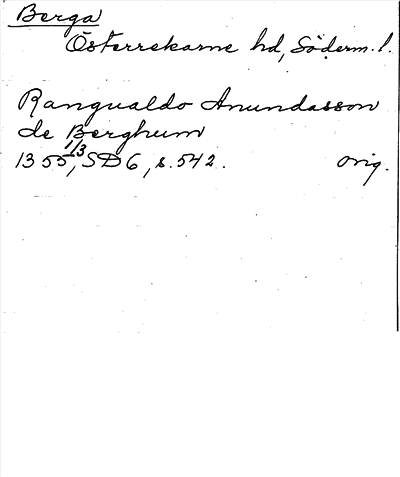 Berga
Österrekarne hd, Söderm. l.
Rangualdo Anundasson
de Berghum
1355 1/3, SD 6, s. 542. orig.